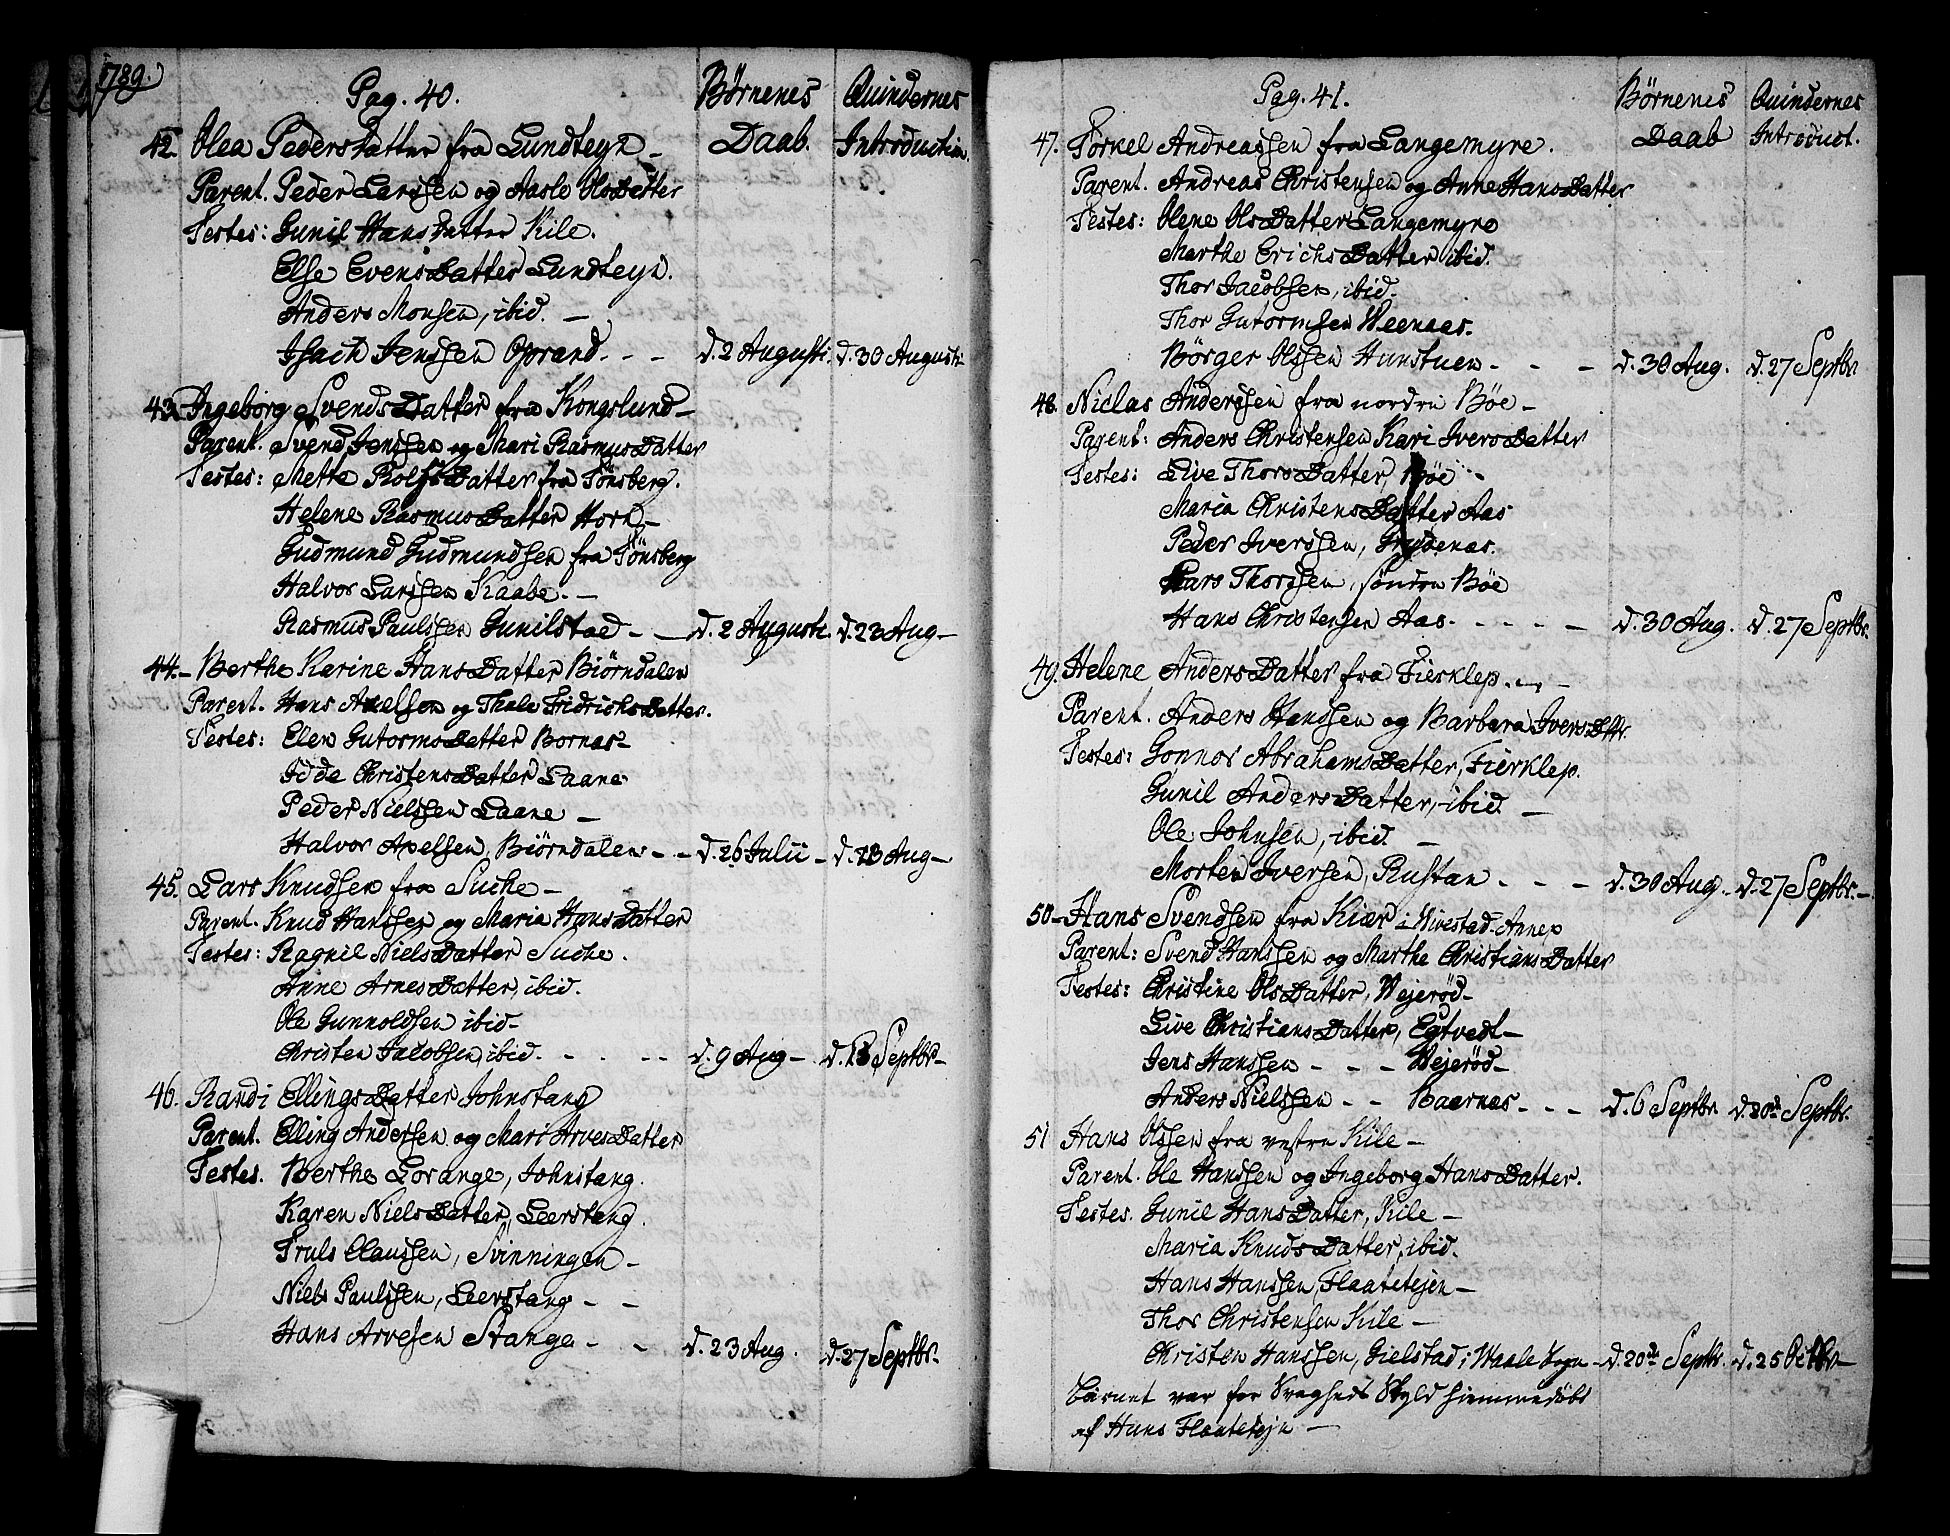 1789.
Pag. 40.
Børnenes Daab.
Quindernes Introduction.
42. Olea PedersDatter fra Lundteyn -
Parent. Peder Larssen og Aasle OlsDatter
Testes: Gunil HansDatter Kile.
Else EvensDatter Lundteyn.
Anders Monsen, ibid. -
Isach Jenssen Oprand - - d. 2 Augusti. d. 30 Augusti
43. Ingeborg SvendsDatter fra Kongslund -
Parent. Svend Jenssen og Mari RasmusDatter
Testes: Mette RolfsDatter fra Tönsberg.
Helene RasmusDatter Horn -
Gudmund Gudmundsen fra Tönsberg
Halvor Larssen Kaabe. -
Rasmus Paulssen Gunilstad - - d. 2 Augusti. d. 23 Aug -
44. - Berthe Karine HansDatter Biörndalen
Parent. Hans Axelsen og Thale FridrichsDatter.
Testes: Elen GutormsDatter Bornas -
Idde ChristensDatter Laane
Peder Nielssen Laane -
Halvor Axelsen, Biörndalen - - d. 26 Julii - d. 23 Aug -
45. Lars Knudsen fra Suche -
Parent. Knud Hanssen og Maria HansDatter
Testes: Ragnil NielsDatter Suche.
Anne ArnesDatter, ibid.
Ole Gunnoldsen ibid -
Christen Jacobsen, ibid. - - - d. 9 Aug - d. 13 Septbr -
46. Randi EllingsDatter Johnstang
Parent. Elling Andersen og Mari ArvesDatter
Testes. Berthe Lorange, Johnstang.
Karen NielsDatter, Leerstang.
Truls Claussen, Svinningen -
Niels Paulssen, Leerstang - -
Hans Arvesen Stange - - d. 23 Aug. d. 27 Septbr.
Pag. 41.
Børnenes Daab
Quindernes Introduct.
47. Torkel Andreassen fra Langemyre.
Parent. Andreas Christensen og Anne HansDatter
Testes: Olene OlsDatter Langemyre
Marthe ErichsDatter ibid.
Thor Jacobsen, ibid.
Thor Gutormsen Weenaas.
Börger Olssen Hunstuen - - - d. 30 Aug. d. 27 Septbr
48. Niclas Anderssen fra nordre Böe -
Parent: Anders Christensen Kari IversDatter
Testes: Live ThorsDatter, Böe -
Maria ChristensDatter Aas
Peder Iverssen,
Lars Thorssen, söndre Böe
Hans Christensen Aas. - - - - d. 30 Aug. d. 27 Septbr.
49. Helene AndersDatter fra Fierklep. -
Parent. Anders Hanssen og Barbara IversDttr.
Testes: Gonnor AbrahamsDatter, Fierklep.
Gunil AndersDatter, ibid. -
Ole Johnsen, ibid. -
Morten Iversen, Rustan - - - d. 30 Aug. - d. 27 Septbr. -
50 - Hans Svendsen fra Kiær i Wivestad Annex
Parent: Svend Hanssen og Marthe ChristiansDatter
Testes: Christine OlsDatter, Wejeröd -
Live ChristiansDatter, Egtvedt -
Jens Hanssen - - - Wejeröd -
Anders Nielssen - - Baernes - - - d. 6 Septbr. d. 20de Septbr.
51 Hans Olssen fra vestre Kile -
Parent. Ole Hanssen og Ingeborg HansDatter.
Testes. Gunil HansDatter, Kile -
Maria KnudsDatter, ibid.
Hans Hanssen, Flaatetejen -
Thor Christensen Kile -
Christen Hanssen, Gielstad i Waale Sogn - d. 20de Septbr. d. 25 Octbr -
Barnet var for Svagheds Skyld hiemmedöbt
af Hans Flaatetejn -